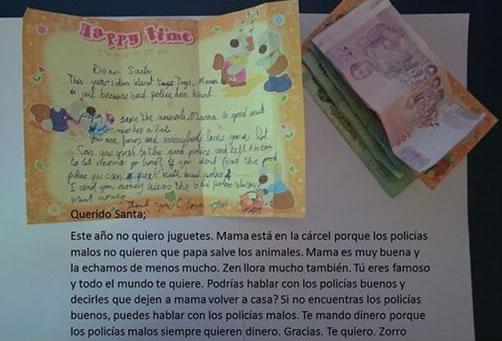 Happy time
Dear Santa
This year I don want toys. Mama
is jail because bad police don want
save the animals. Mama is good and
You are famous and everybody loves you.
Can you speak to the good police and tell them
to let mama go home? If you don't find the good
police you can speak with bad police.
I send you money because the bad police always
want money. Thank you. I love you
Querido Santa;
Este año no quiero juguetes. Mama está en la cárcel porque los policías
malos no quieren que papa salve los animales. Mama es muy buena y
la echamos de menos mucho. Zen llora mucho también. Tú eres famoso
y todo el mundo te quiere. Podrías hablar con los policías buenos y
decirles que dejen a mama volver a casa? Si no encuentras los policías
buenos, puedes hablar con los policías malos. Te mando dinero porque
los policías malos siempre quieren dinero. Gracias. Te quiero. Zorro